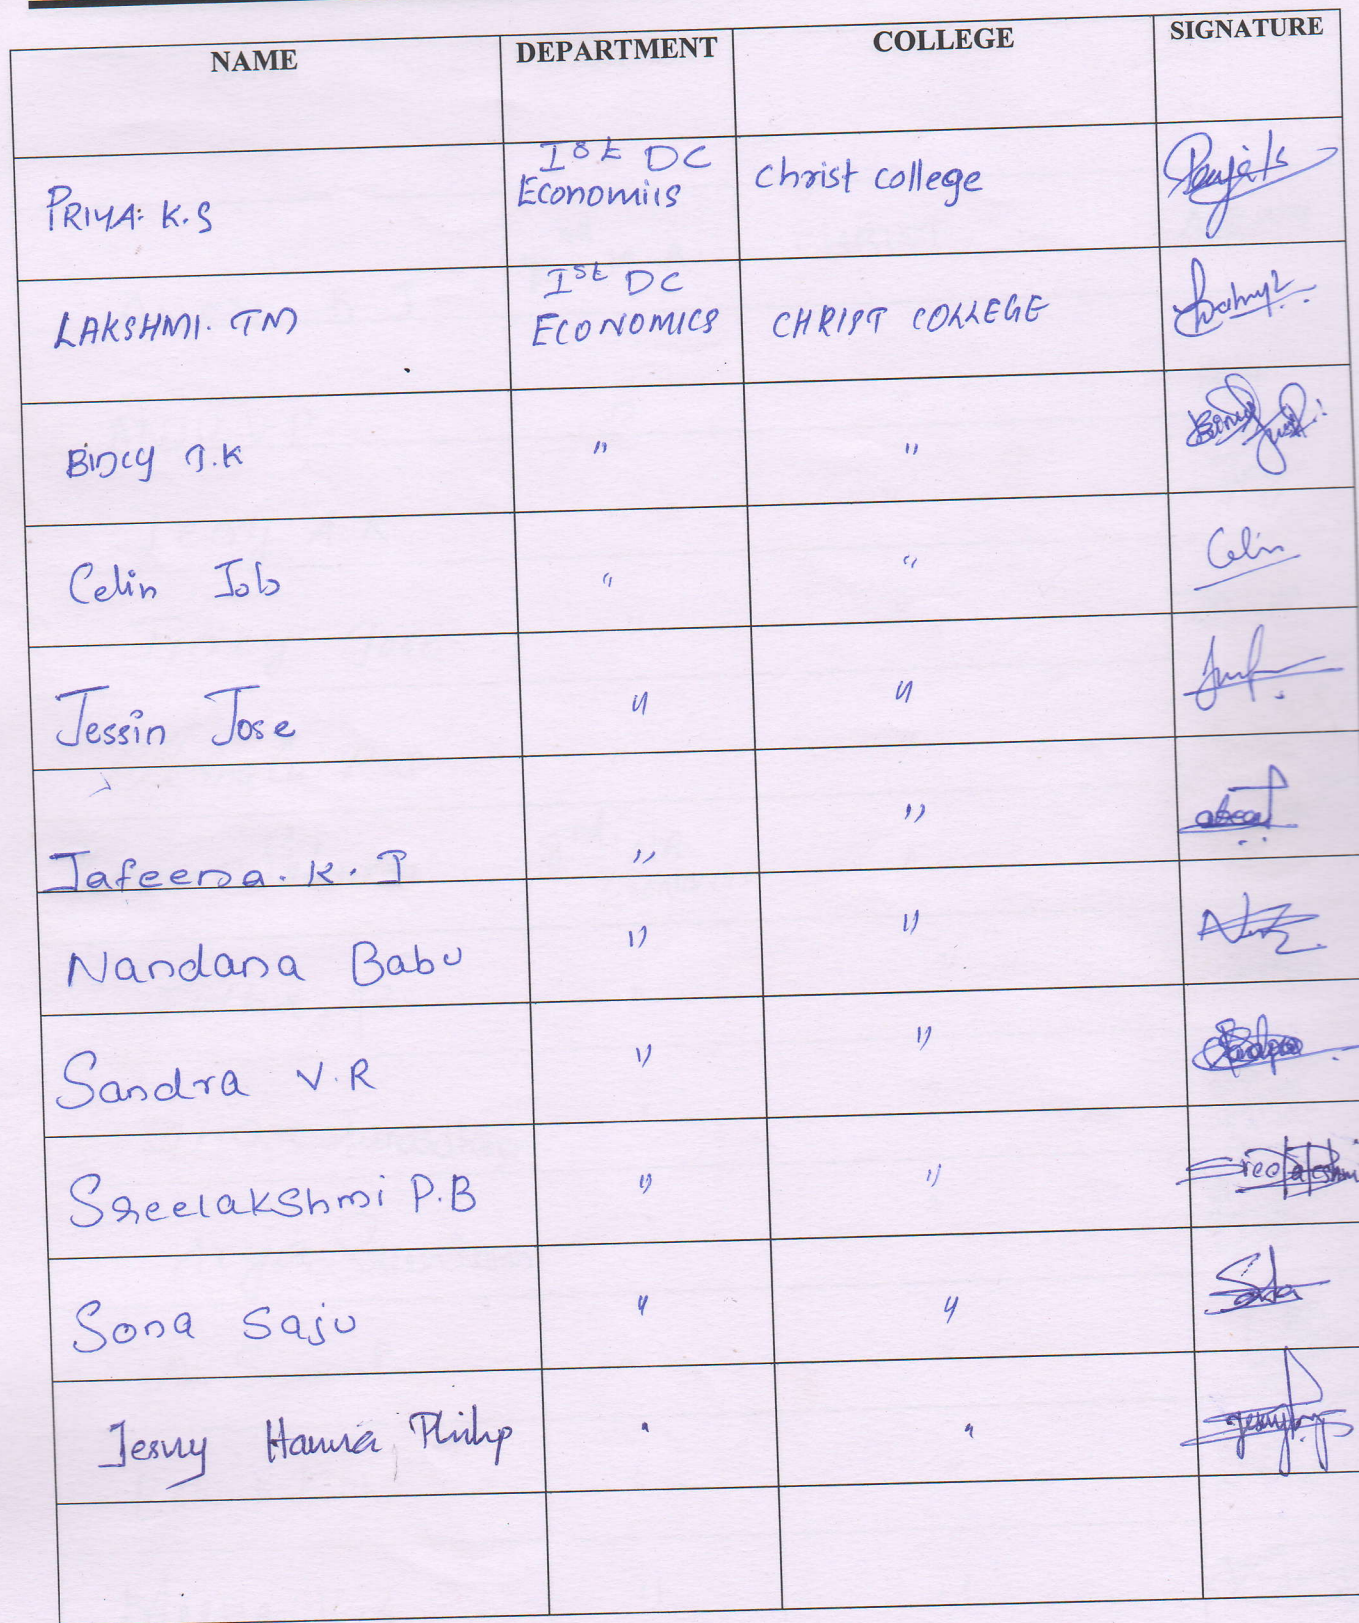 NAME DEPARTMENT COLLEGE SIGNATURE
PRIYA. K.S Ist DC Economics Christ College
LAKSHMI. TM Ist DC ECONOMICS CHRIST COLLEGE
Bincy J.K " "
Celin Job " " Celin
Jessin Jose " "
Jafeena. K. J " "
Nandana Babu " "
Sandra V.R " "
Sreelakshmi P.B " " Sreelakshmi
Sona Saju " "
Jesny Hanna Philip " "